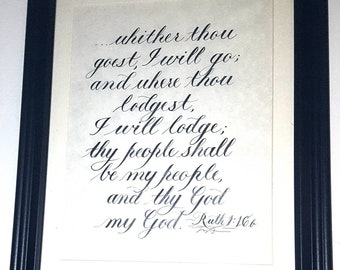 ...whither thou
goest, I will go;
and where thou
lodgest,
I will lodge;
thy people shall
be my people,
and thy God
my God. Ruth 1:16b